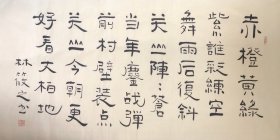 赤橙黃綠
紫誰彩練空
舞雨后復斜
关山陣々蒼
当年鏖戰彈
前村壁裝点
关山今朝更
好看大柏地
林筱之书